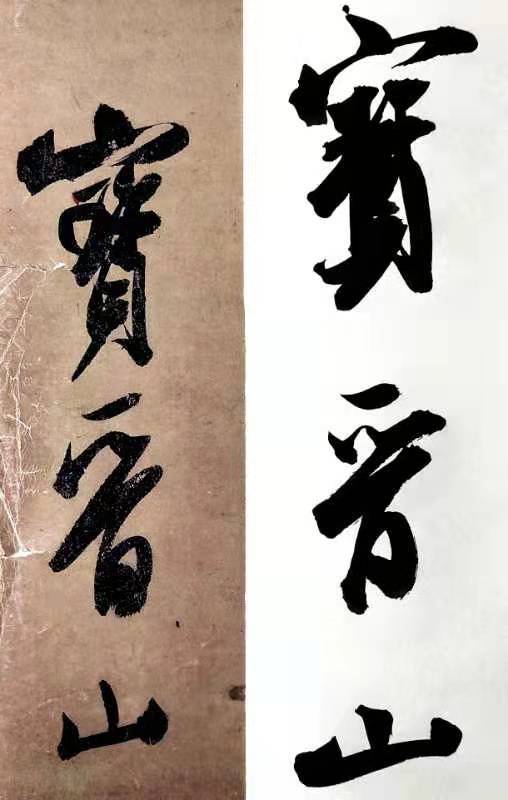 寶晉山
寶晉山